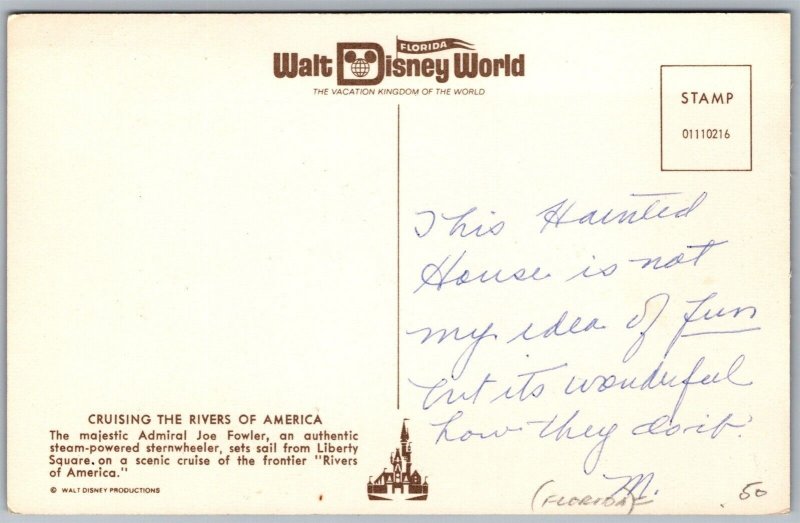 FLORIDA
Walt Disney World
THE VACATION KINGDOM OF THE WORLD
STAMP
01110216
This Hainted
House is not
my idea of fun
but its wonderful
how they do it.
M.
CRUISING THE RIVERS OF AMERICA
The majestic Admiral Joe Fowler, an authentic
steam-powered sternwheeler, sets sail from Liberty
Square, on a scenic cruise of the frontier "Rivers
of America."
© WALT DISNEY PRODUCTIONS
(FLORIDA)
.50